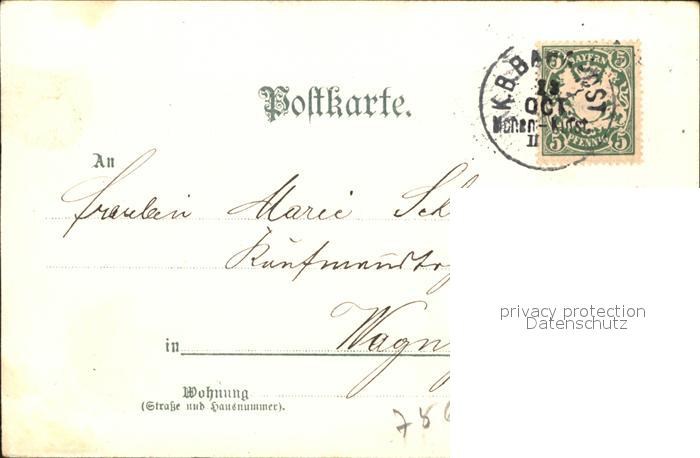 K.B.BAHNPOST
BAYERN
5 5
13
OCT
Mchen-Kufst.
II
5 PFENNIG 5
Postkarte.
An
Fraulein Marie Sch
Kaufmannsto
privacy protection
Datenschutz
in Wagn
Wohnung
(Straße und Hausnummer).